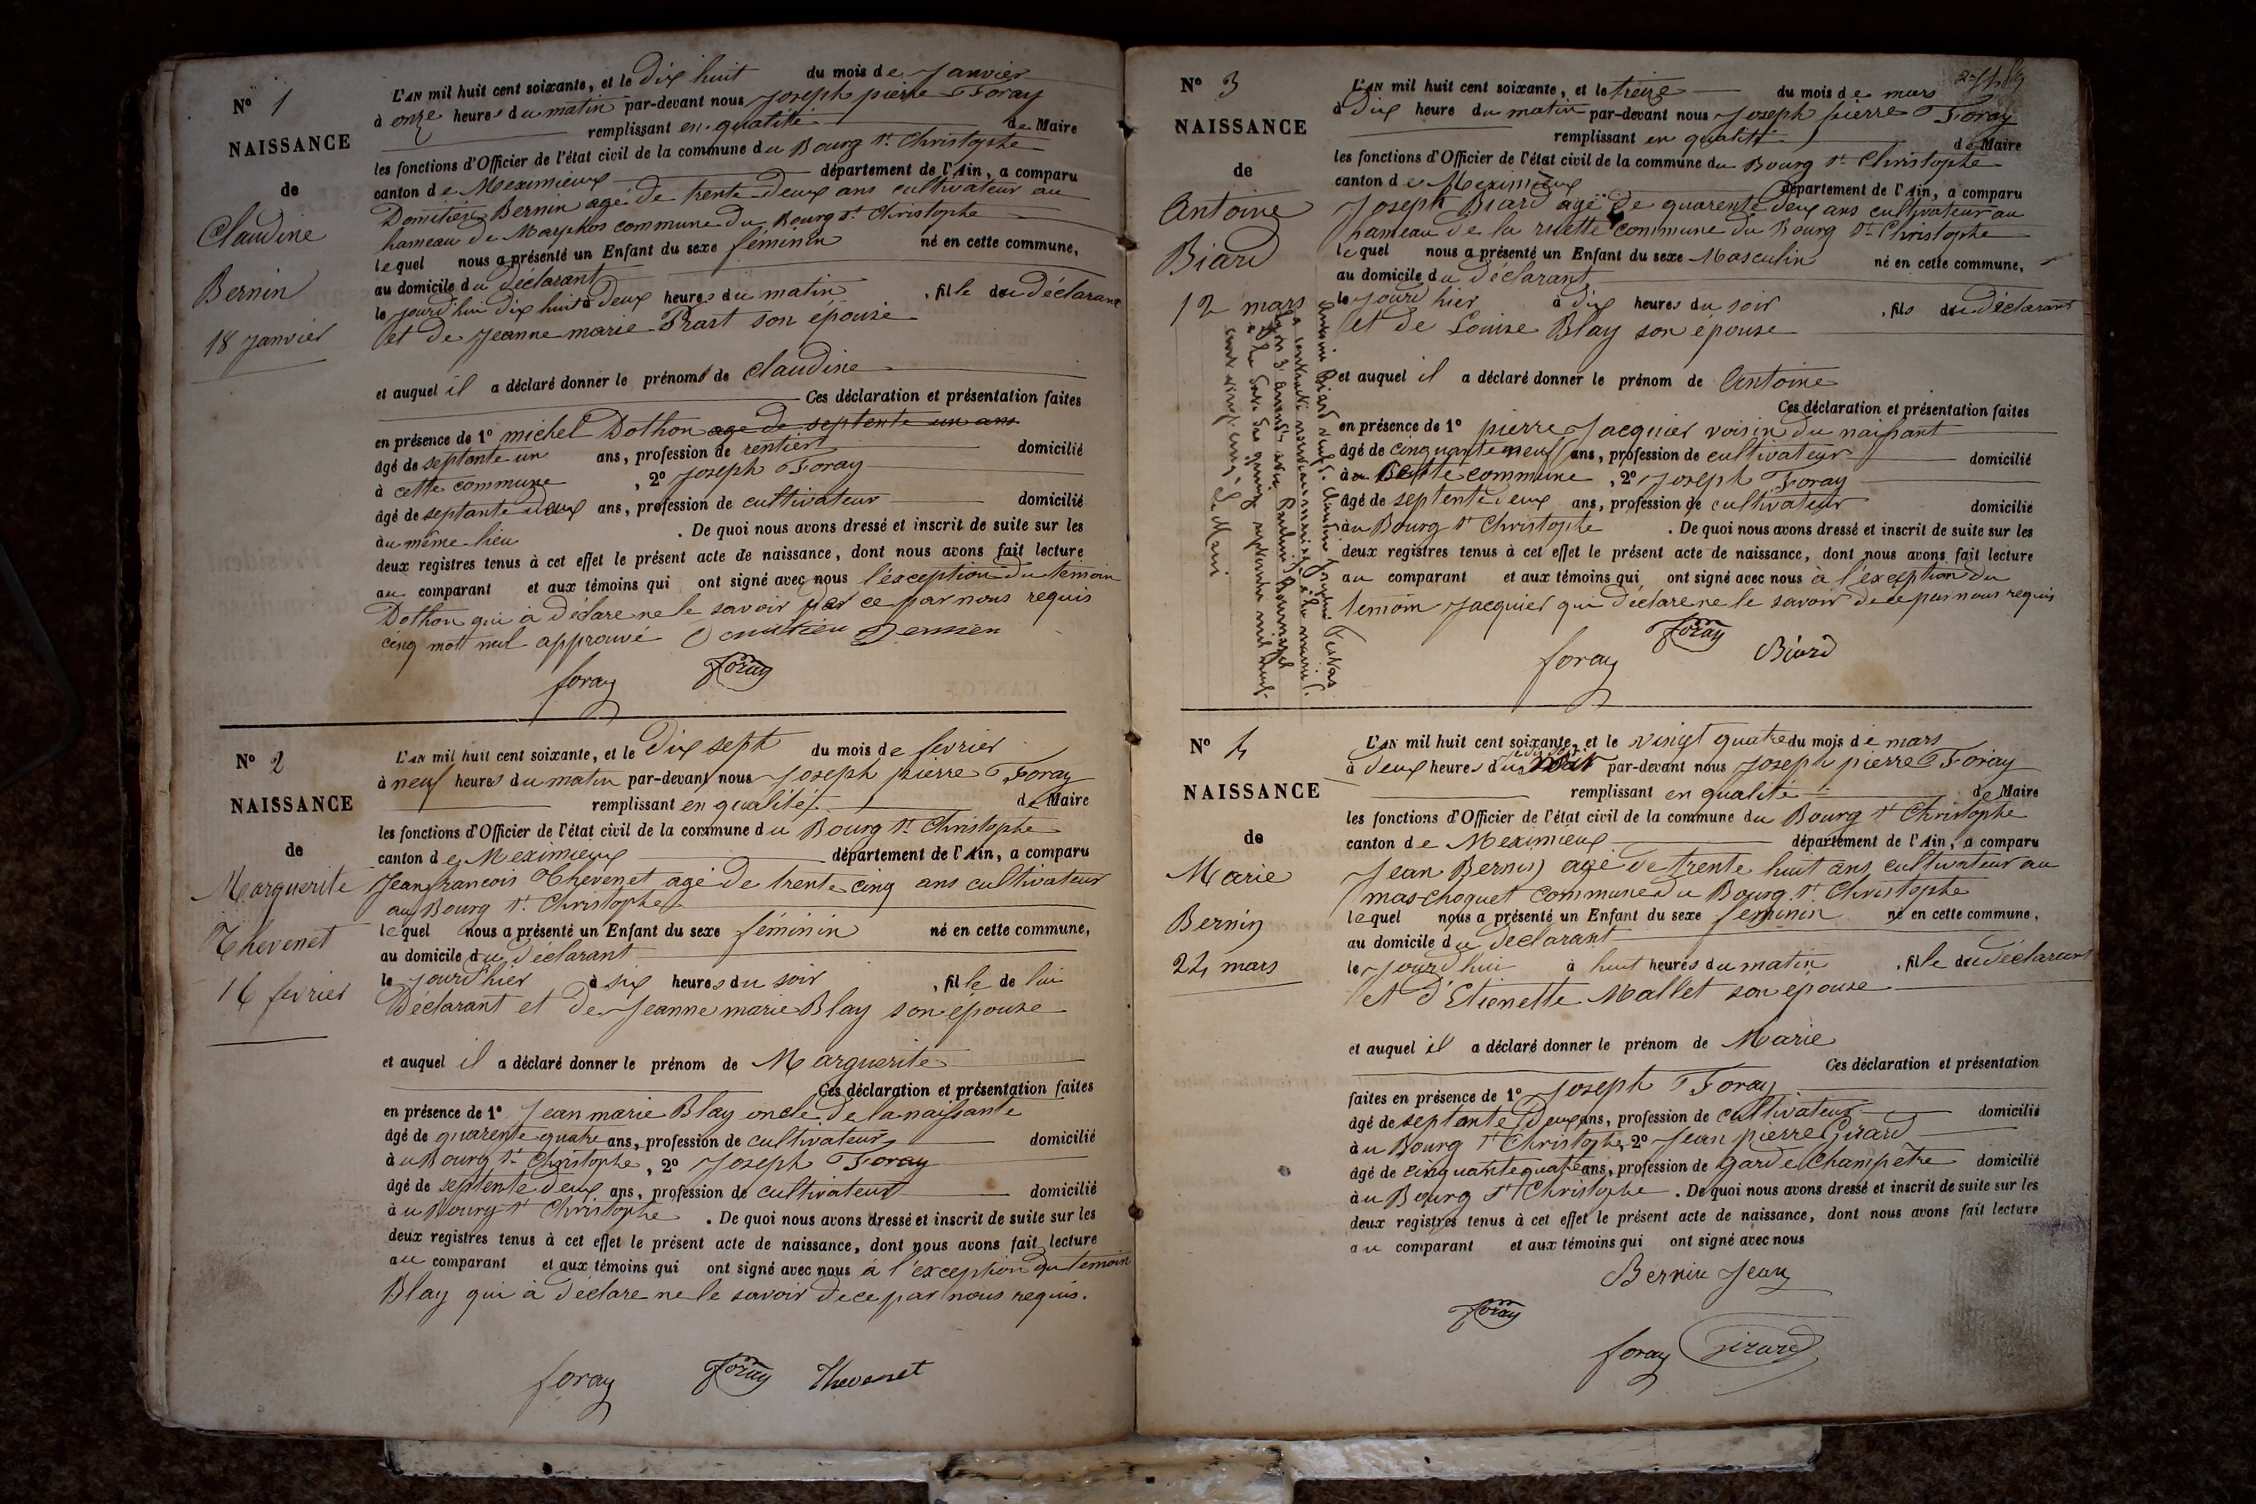 N° 1
NAISSANCE
de
Claudine
Bernin
18 janvier
L'AN mil huit cent soixante, et le dix huit du mois de janvier
à onze heures du matin par-devant nous joseph pierre Foray
remplissant en qualité de Maire
les fonctions d'Officier de l'état civil de la commune du Bourg St Christophe
canton de Meximieux département de l'Ain, a comparu
Domitien Bernin agé de trente deux ans cultivateur au
hameau de commune du Bourg St Christophe
lequel nous a présenté un Enfant du sexe féminin né en cette commune,
au domicile du déclarant
le jourd'hui dix huit à deux heures du matin, fille du déclarant
et de jeanne marie Prast son épouse
et auquel il a déclaré donner le prénom de Claudine
Ces déclaration et présentation faites
en présence de 1° michel Dothon age de septente un ans
âgé de septante un ans, profession de rentier domicilié
à cette commune, 2° joseph Foray
âgé de septante deux ans, profession de cultivateur domicilié
au même lieu . De quoi nous avons dressé et inscrit de suite sur les
deux registres tenus à cet effet le présent acte de naissance, dont nous avons fait lecture
au comparant et aux témoins qui ont signé avec nous l'exception du temoin
Dothon qui à déclare ne le savoir de ce par nous requis
cinq mott nul approuvé
foray Foray
N° 2
NAISSANCE
de
Marguerite
Thevenet
16 fevrier
L'AN mil huit cent soixante, et le dix sept du mois de fevrier
à neuf heures du matin par-devant nous joseph pierre Foray
remplissant en qualité de Maire
les fonctions d'Officier de l'état civil de la commune du Bourg St Christophe
canton de Meximieux département de l'Ain, a comparu
jean francois Thevenet agé de trente cinq ans cultivateur
au Bourg St Christophe
lequel nous a présenté un Enfant du sexe féminin né en cette commune,
au domicile du déclarant
le jourd'hier à six heures du soir, fille de lui
déclarant et de jeanne marie Blay son épouse
et auquel il a déclaré donner le prénom de Marguerite
Ces déclaration et présentation faites
en présence de 1° jean marie Blay oncle de la naissante
âgé de quarente quatre ans, profession de cultivateur domicilié
au Bourg St Christophe, 2° joseph Foray
âgé de septente deux ans, profession de cultivateur domicilié
au Bourg St Christophe . De quoi nous avons dressé et inscrit de suite sur les
deux registres tenus à cet effet le présent acte de naissance, dont nous avons fait lecture
au comparant et aux témoins qui ont signé avec nous à l'exception du temoin
Blay qui à déclare ne le savoir de ce par nous requis.
foray Foray Thevenet
N° 3
NAISSANCE
de
Antoine
Biard
12 mars
L'AN mil huit cent soixante, et le treize du mois de mars
à dix heure du matin par-devant nous joseph pierre Foray
remplissant en qualité de Maire
les fonctions d'Officier de l'état civil de la commune du Bourg St Christophe
canton de Meximieux département de l'Ain, a comparu
joseph Biard agé de quarente deux ans cultivateur au
hameau de la ruette commune du Bourg St Christophe
lequel nous a présenté un Enfant du sexe Masculin né en cette commune,
au domicile du déclarant
le jourd'hier à dix heures du soir, fils du déclarant
et de Louise Blay son épouse
et auquel il a déclaré donner le prénom de Antoine
Ces déclaration et présentation faites
en présence de 1° pierre jacquier voisin du naissant
âgé de cinquante neuf ans, profession de cultivateur domicilié
à cette commune, 2° joseph Foray
âgé de septente deux ans, profession de cultivateur domicilié
au Bourg St Christophe . De quoi nous avons dressé et inscrit de suite sur les
deux registres tenus à cet effet le présent acte de naissance, dont nous avons fait lecture
au comparant et aux témoins qui ont signé avec nous à l'exception du
temoin jacquier qui déclare ne le savoir de ce par nous requis
foray Foray Biard
N° 4
NAISSANCE
de
Marie
Bernin
24 mars
L'AN mil huit cent soixante, et le vingt quatre du mois de mars
à deux heures du soir par-devant nous joseph pierre Foray
remplissant en qualité de Maire
les fonctions d'Officier de l'état civil de la commune du Bourg St Christophe
canton de Meximieux département de l'Ain, a comparu
jean Bernin agé de trente huit ans cultivateur au
mas choquet commune du Bourg St Christophe
lequel nous a présenté un Enfant du sexe feminin né en cette commune,
au domicile du declarant
le jourd'hui à huit heures du matin, fille du déclarant
et d'Etienette Mallet son epouse
et auquel il a déclaré donner le prénom de Marie
Ces déclaration et présentation
faites en présence de 1° joseph Foray
âgé de septente deux ans, profession de cultivateur domicilié
au Bourg St Christophe, 2° jean pierre Girard
âgé de cinquante quatre ans, profession de garde champetre domicilié
au Bourg St Christophe . De quoi nous avons dressé et inscrit de suite sur les
deux registres tenus à cet effet le présent acte de naissance, dont nous avons fait lecture
au comparant et aux témoins qui ont signé avec nous
Bernin jean
Foray
foray Girard